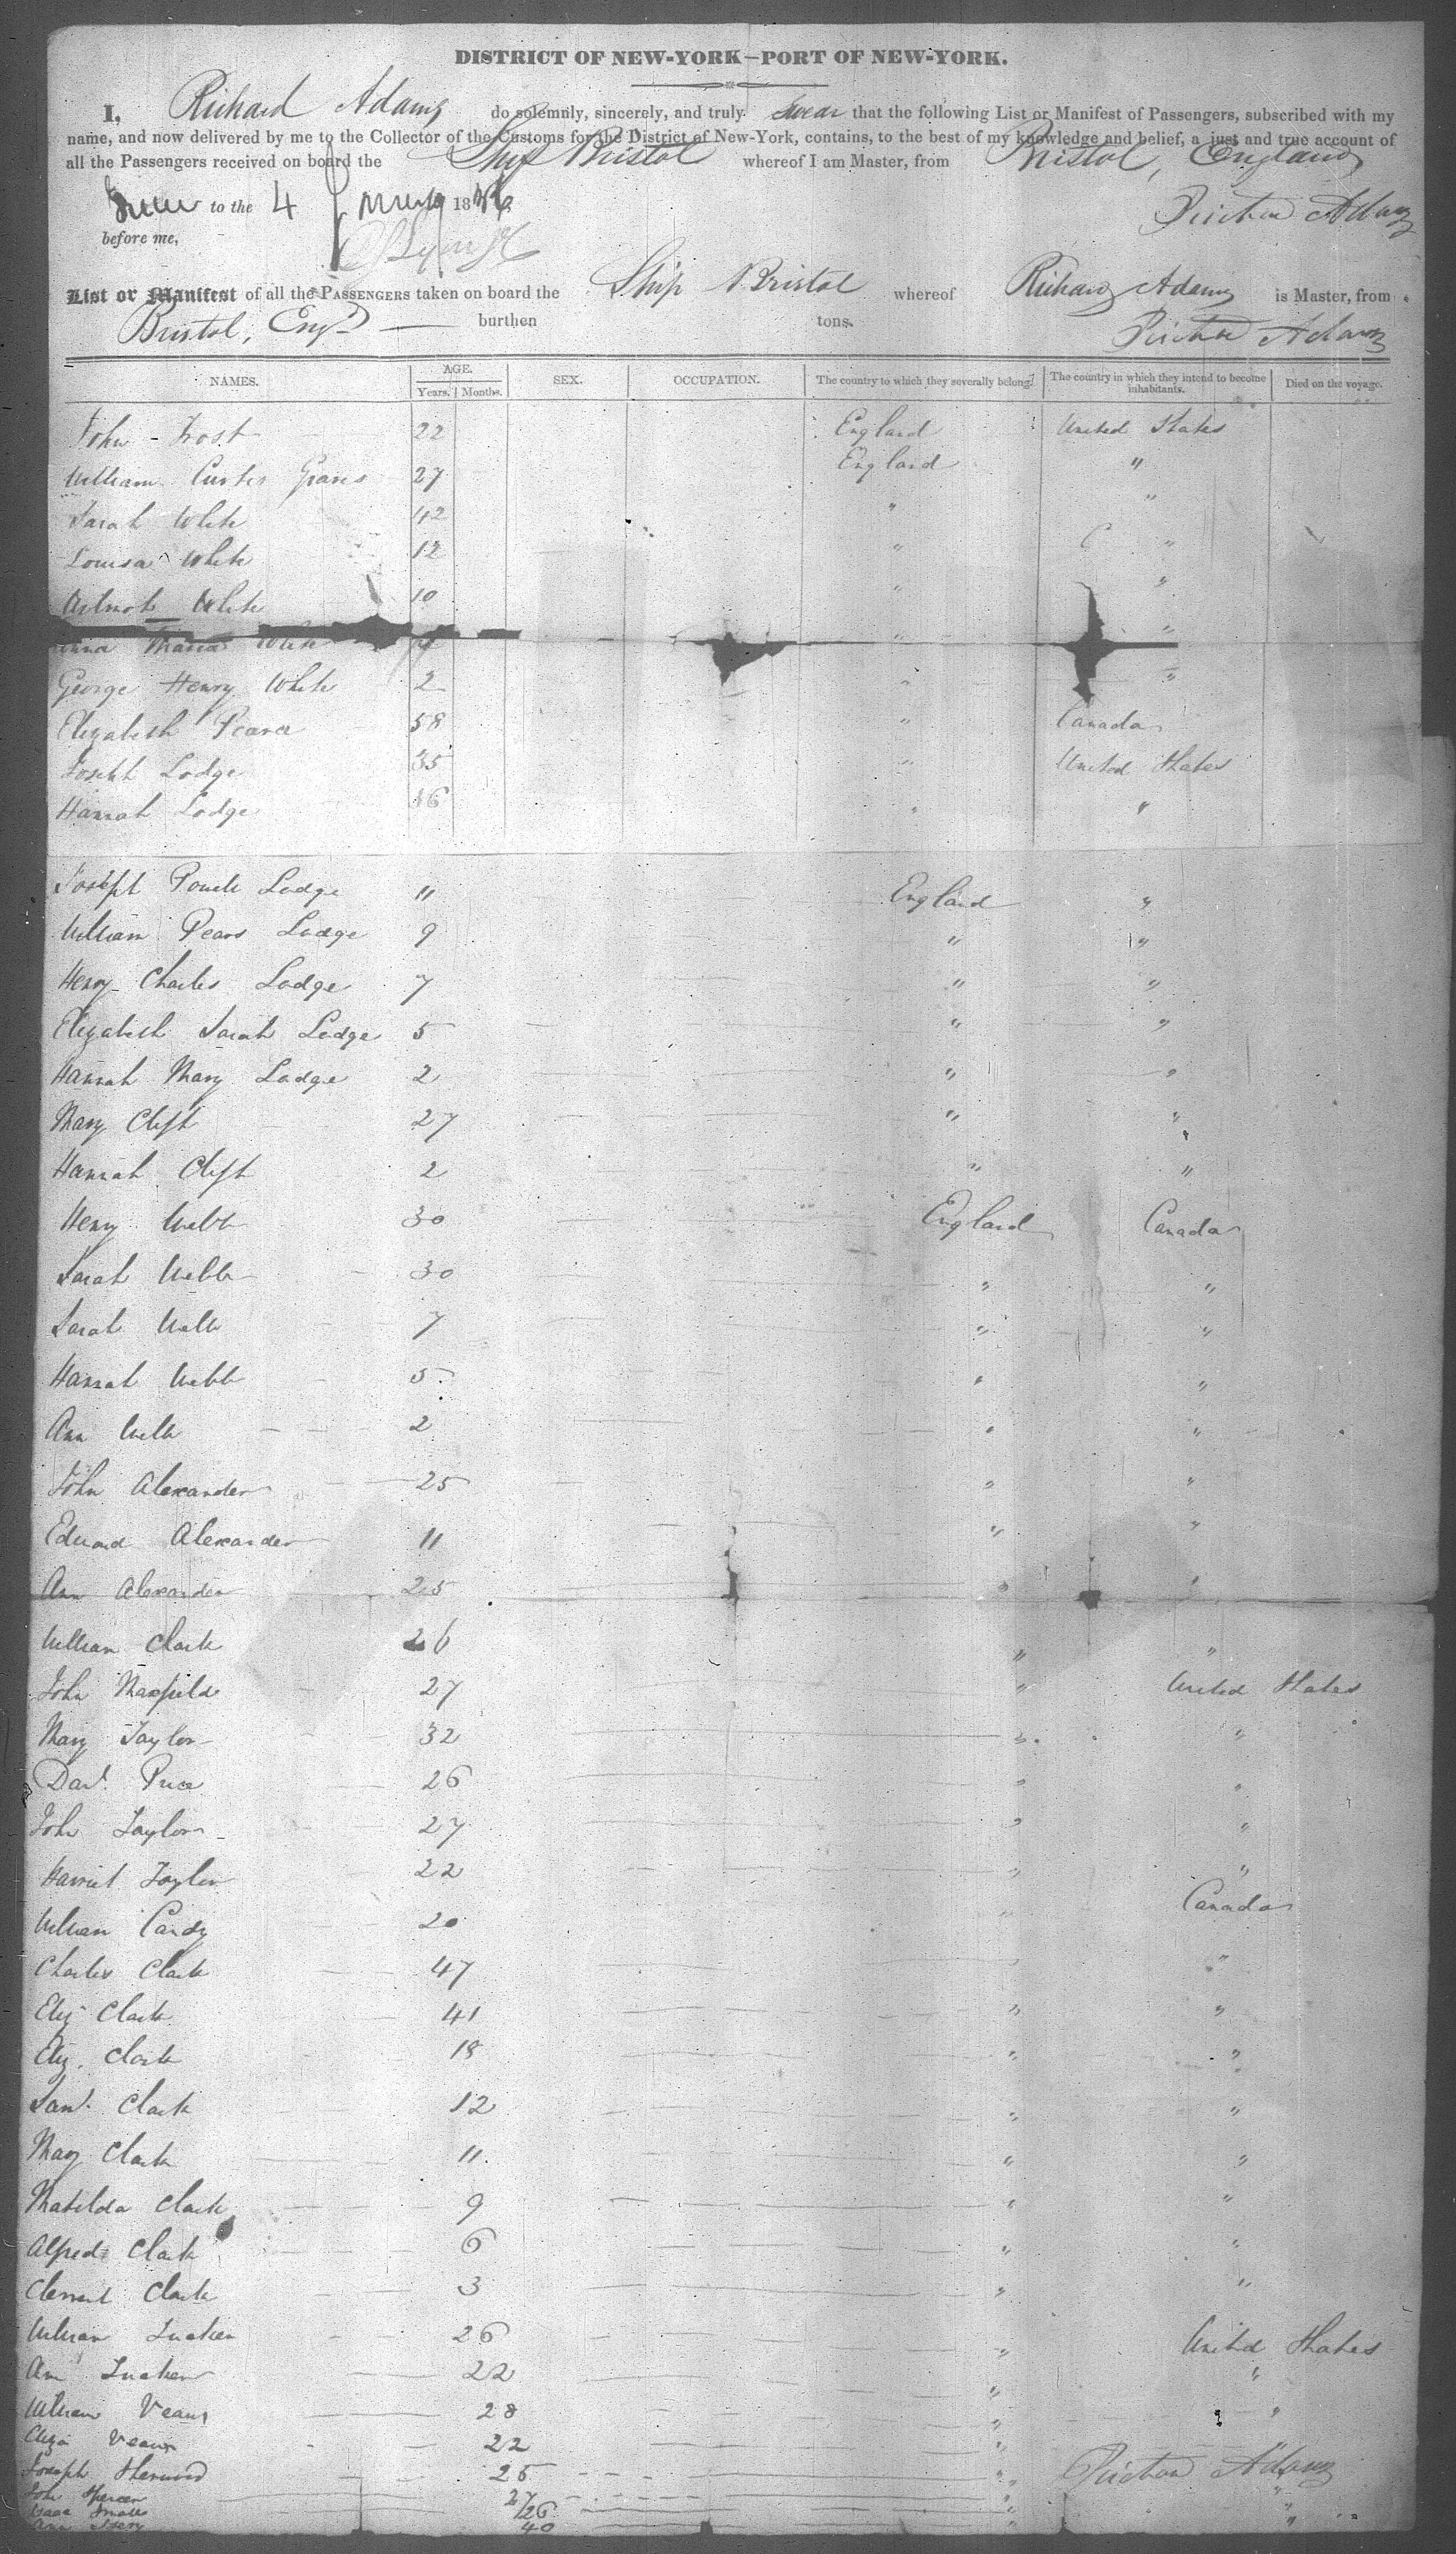 DISTRICT OF NEW-YORK—PORT OF NEW-YORK.
I, Richard Adams do solemnly, sincerely, and truly swear that the following List or Manifest of Passengers, subscribed with my
name, and now delivered by me to the Collector of the Customs for the District of New-York, contains, to the best of my knowledge and belief, a just and true account of
all the Passengers received on board the Ship Bristol whereof I am Master, from Bristol, England
to the 4 18 Richard Adams
before me,
List or Manifest of all the PASSENGERS taken on board the Ship Bristol whereof Richard Adams is Master, from
Bristol, Engd burthen tons. Richard Adams
NAMES. AGE. Years. Months. SEX. OCCUPATION. The country to which they severally belong. The country in which they intend to become inhabitants. Died on the voyage.
John Frost 22 England United States
William Curtis 27 England "
Sarah White 42 " "
Louisa White 12 " "
White 10 " "
Maria White " "
George Henry White 2 " "
Elizabeth Pearce 58 " Canada
Joseph Lodge 35 " United States
Hannah Lodge 36 " "
Joseph Lodge 11 England "
William Pears Lodge 9 " "
Henry Charles Lodge 7 " "
Elizabeth Sarah Lodge 5 " "
Hannah Mary Lodge 2 " "
Mary Clift 27 " "
Hannah Clift 2 " "
Henry Webb 30 England Canada
Sarah Webb 30 " "
Sarah Webb 7 " "
Hannah Webb 5 " "
Ann Webb 2 " "
John Alexander 25 " "
Edward Alexander 11 " "
Ann Alexander 25 " "
William Clark 26 " "
John Maxfield 27 " United States
Mary Taylor 32 " "
Danl. Price 26 " "
John Taylor 27 " "
Harriet Taylor 22 " "
William Candy 20 " Canada
Charles Clark 47 " "
Eliz Clark 41 " "
Eliz. Clark 18 " "
Clark 12 " "
Mary Clark 11 " "
Matilda Clark 9 " "
Alfred Clark 6 " "
Clement Clark 3 " "
William 26 " United States
Ann 22 " "
William 28 " "
Eliza 22 "
Joseph Sherwood 25 " Richard Adams
John Spencer 27 " "
Isaac 26 " "
Ann 40 " "